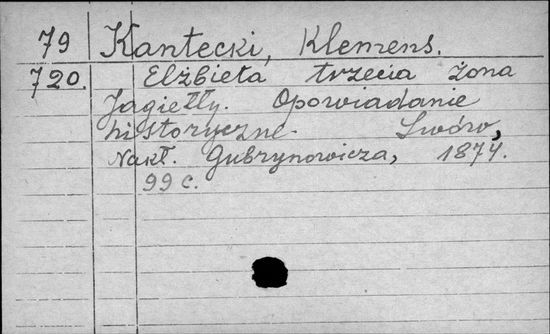 79 Kantecki, Klemens.
720. Elżbieta trzecia żona
Jagiełły. Opowiadanie
historyczne. Lwów,
Nakł. Gubrynowicza, 1874.
99 c.